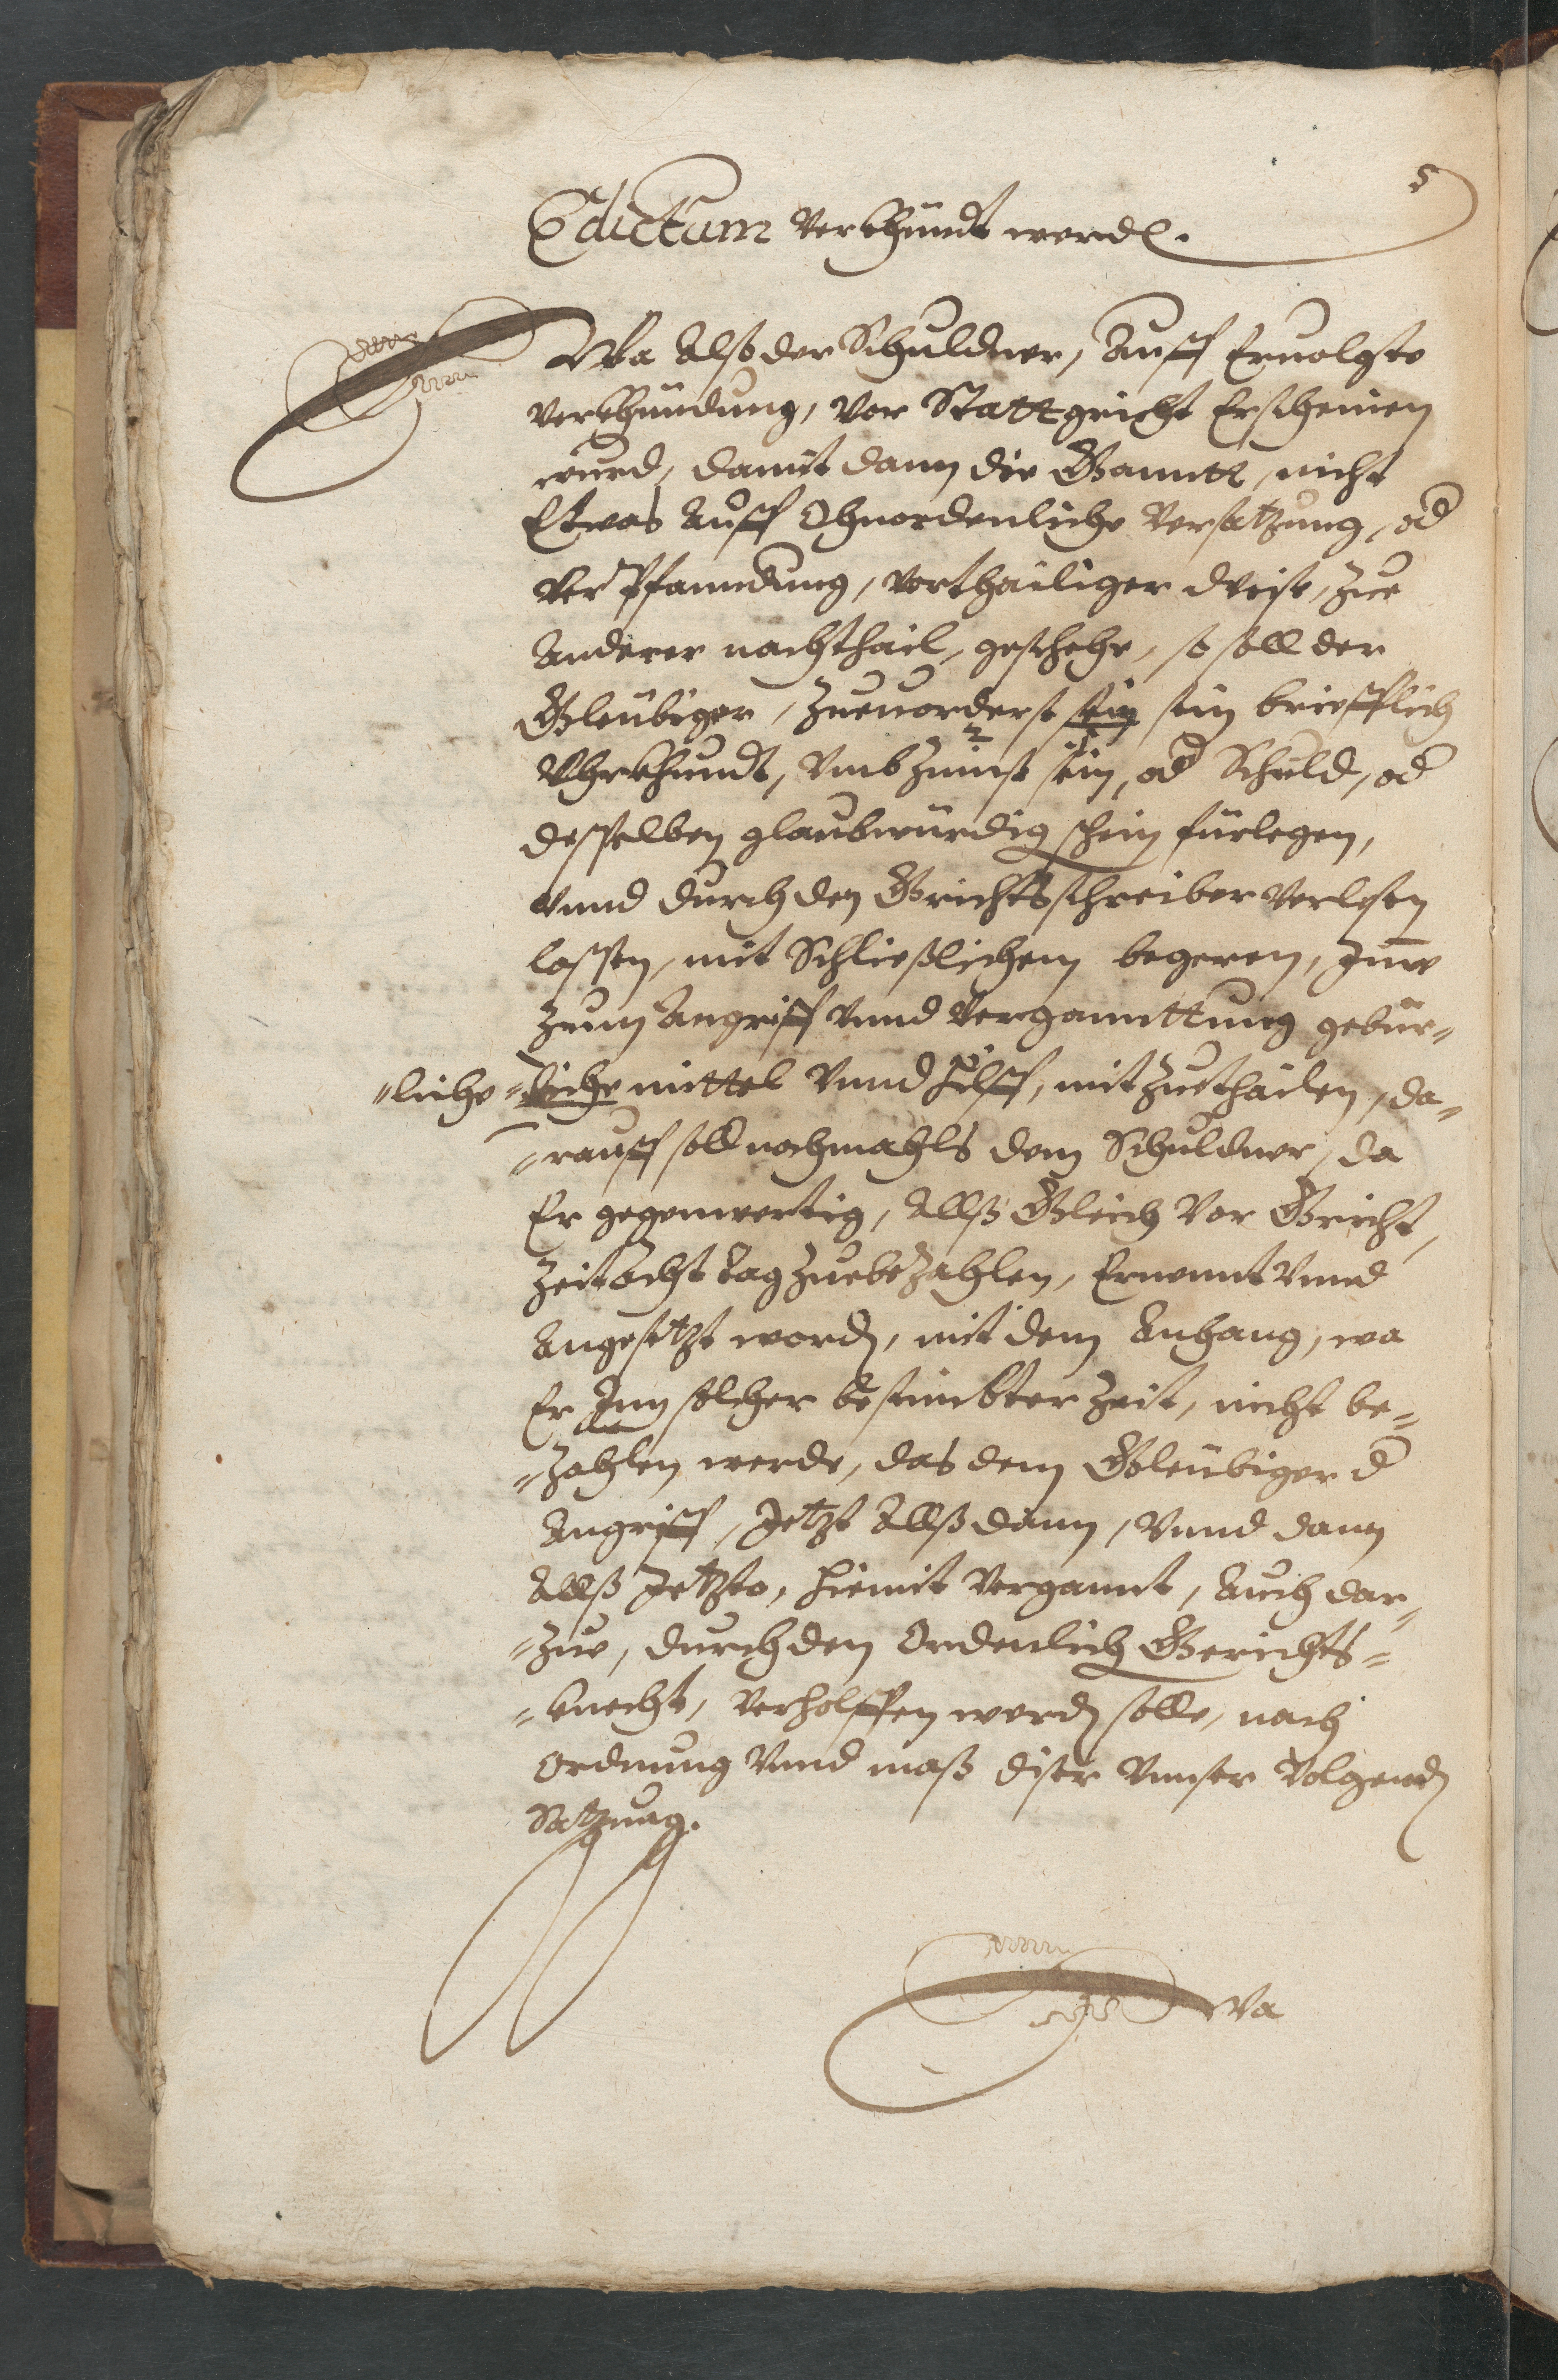 5
Edictum verkhündt werd.
Wa Alß der Schuldner, Auff Eruolgte
verkhündung, vor Stattgricht Erscheinen
wurd, damit dann die Ganntt, nicht
Etwas Auff Ohnordenliche Versatzung, od
Verpfanndung, vorthailiger weise, zue
Anderer nachthail, geschehe, so soll der
Gleubiger, zueuorderst sein sein briefflich
Vhrkhundt, vmb Zinnß sein, od Schuld, od
desselben glaubwürdig schein fürlegen,
vnnd durch den Grichtsschreiber verlesen
lassen, mit Schließlichem begeren, Jme
zum Angriff vnnd Verganttung gebür-
-liche -liche mittel vnnd hilff, mitzuethailen, da-
-rauff soll nochmahls dem Schuldner, da
Er gegenwertig, Allß Gleich vor Gricht,
Zeit Acht tag zuebezahlen, Ernennt vnnd
Angesetzt werd, mit dem Anhang, wa
Er Jnn solcher bestimbter Zeit, nicht be-
-zahlen werde, das dem Gleubiger d
Angriff, Jetzt Allß dann, vnnd dann
Allß Jetzto, hiemit vergannt, Auch dar-
-zue, durch den Ordenlich Gerichts-
-knecht, verholffen werd solle, nach
Ordnung vnnd maß diser vnnser volgend
Satzung.
Wa